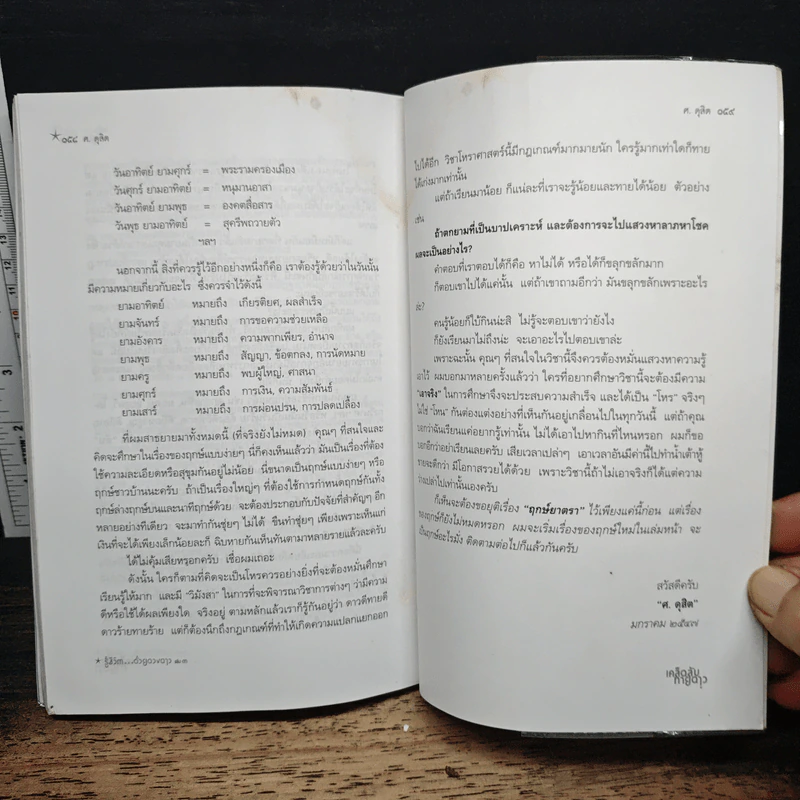 ๑๕๘ ศ. ดุสิต
วันอาทิตย์ ยามศุกร์ = พระรามครองเมือง
วันศุกร์ ยามอาทิตย์ = หนุมานอาสา
วันอาทิตย์ ยามพุธ = องคตสื่อสาร
วันพุธ ยามอาทิตย์ = สุครีพถวายตัว
ฯลฯ
นอกจากนี้ สิ่งที่ควรรู้ไว้อีกอย่างหนึ่งก็คือ เราต้องรู้ด้วยว่าในวันนั้น
มีความหมายเกี่ยวกับอะไร ซึ่งควรจำไว้ดังนี้
ยามอาทิตย์ หมายถึง เกียรติยศ, ผลสำเร็จ
ยามจันทร์ หมายถึง การขอความช่วยเหลือ
ยามอังคาร หมายถึง ความพากเพียร, อำนาจ
ยามพุธ หมายถึง สัญญา, ข้อตกลง, การนัดหมาย
ยามครู หมายถึง พบผู้ใหญ่, ศาสนา
ยามศุกร์ หมายถึง การเงิน, ความสัมพันธ์
ยามเสาร์ หมายถึง การผ่อนปรน, การปลดเปลื้อง
ที่ผมสาธยายมาทั้งหมดนี้ (ที่จริงยังไม่หมด) คุณๆ ที่สนใจและ
คิดจะศึกษาในเรื่องของฤกษ์แบบง่ายๆ นี่ก็คงเห็นแล้วว่า มันเป็นเรื่องที่ต้อง
ใช้ความละเอียดหรือสุขุมกันอยู่ไม่น้อย นี่ขนาดเป็นฤกษ์แบบง่ายๆ หรือ
ฤกษ์ชาวบ้านนะครับ ถ้าเป็นเรื่องใหญ่ๆ ที่ต้องใช้การกำหนดฤกษ์กันทั้ง
ฤกษ์ล่างฤกษ์บนและนาทีฤกษ์ด้วย จะต้องประกอบกับปัจจัยที่สำคัญๆ อีก
หลายอย่างทีเดียว จะมาทำกันซุ่ยๆ ไม่ได้ ขืนทำซุ่ยๆ เพียงเพราะเห็นแก่
เงินที่จะได้เพียงเล็กน้อยละก็ ฉิบหายกันเห็นทันตามาหลายรายแล้วละครับ
ได้ไม่คุ้มเสียหรอกครับ เชื่อผมเถอะ
ดังนั้น ใครก็ตามที่คิดจะเป็นโหรควรอย่างยิ่งที่จะต้องหมั่นศึกษา
เรียนรู้ให้มาก และมี "วิมังสา" ในการที่จะพิจารณาวิชาการต่างๆ ว่ามีความ
ดีหรือใช้ได้ผลเพียงใด จริงอยู่ ตามหลักแล้วเราก็รู้กันอยู่ว่า ดาวดีทายดี
ดาวร้ายทายร้าย แต่ก็ต้องนึกถึงกฎเกณฑ์ที่ทำให้เกิดความแปลกแยกออก
ศ. ดุสิต ๑๕๙
ไปได้อีก วิชาโหราศาสตร์นี้มีกฎเกณฑ์มากมายนัก ใครรู้มากเท่าใดก็ทาย
ได้เก่งมากเท่านั้น
แต่ถ้าเรียนมาน้อย ก็แน่ละที่เราจะรู้น้อยและทายได้น้อย ตัวอย่าง
เช่น
ถ้าตกยามที่เป็นบาปเคราะห์ และต้องการจะไปแสวงหาลาภหาโชค
ผลจะเป็นอย่างไร?
คำตอบที่เราตอบได้ก็คือ หาไม่ได้ หรือได้ก็ขลุกขลักมาก
ก็ตอบเขาไปได้แค่นั้น แต่ถ้าเขาถามอีกว่า มันขลุกขลักเพราะอะไร
ล่ะ?
คนรู้น้อยก็ใบ้กินน่ะสิ ไม่รู้จะตอบเขาว่ายังไง
ก็ยังเรียนมาไม่ถึงน่ะ จะเอาอะไรไปตอบเขาล่ะ
เพราะฉะนั้น คุณๆ ที่สนใจในวิชานี้จึงควรต้องหมั่นแสวงหาความรู้
เอาไว้ ผมบอกมาหลายครั้งแล้วว่า ใครที่อยากศึกษาวิชานี้จะต้องมีความ
"เอาจริง" ในการศึกษาจึงจะประสบความสำเร็จ และได้เป็น "โหร" จริงๆ
ไม่ใช่ "โหน" กันต่องแต่งอย่างที่เห็นกันอยู่เกลื่อนไปในทุกวันนี้ แต่ถ้าคุณ
บอกว่าฉันเรียนแค่อยากรู้เท่านั้น ไม่ได้เอาไปหากินที่ไหนหรอก ผมก็ขอ
บอกอีกว่าอย่าเรียนเลยครับ เสียเวลาเปล่าๆ เอาเวลาอันมีค่านี้ไปทำน้ำเต้าหู้
ขายจะดีกว่า มีโอกาสรวยได้ด้วย เพราะวิชานี้ถ้าไม่เอาจริงก็ได้แต่ความ
ว่างเปล่าไปเท่านั้นเองครับ
ก็เห็นจะต้องขอยุติเรื่อง "ฤกษ์ยาตรา" ไว้เพียงแค่นี้ก่อน แต่เรื่อง
ของฤกษ์ก็ยังไม่หมดหรอก ผมจะเริ่มเรื่องของฤกษ์ใหม่ในเล่มหน้า จะ
เป็นฤกษ์อะไรมั่ง ติดตามต่อไปก็แล้วกันครับ
สวัสดีครับ
"ศ. ดุสิต"
มกราคม ๒๕๔๗
เคล็ดลับ
ทายดาว